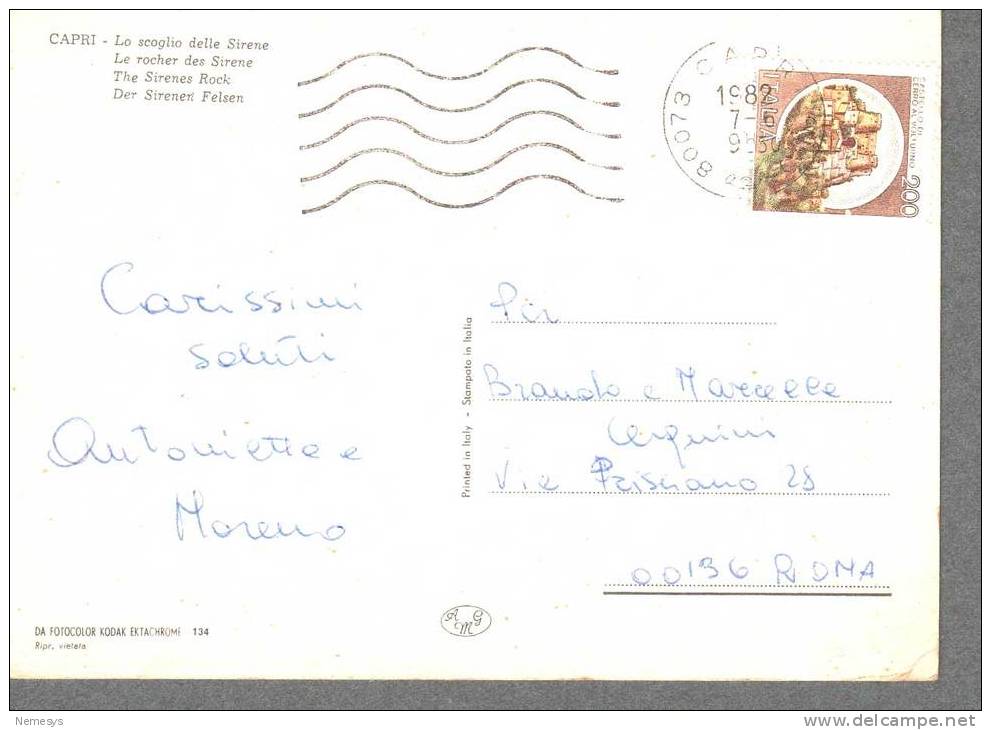 CAPRI - Lo scoglio delle Sirene
Le rocher des Sirene
The Sirenes Rock
Der Sirenen Felsen
80073 CAPRI
1982
7-6
ITALIA
CASTELLO DI
CERRO AL VOLTURNO
200
Carissimi
saluti
Antonietta e
Moreno
Printed in Italy - Stampato in Italia
Brando e Marcella
Cerquini
Via Prisciano 28
00136 ROMA
DA FOTOCOLOR KODAK EKTACHROME 134
Ripr. vietata
A G
M
Nemesys
www.delcampe.net